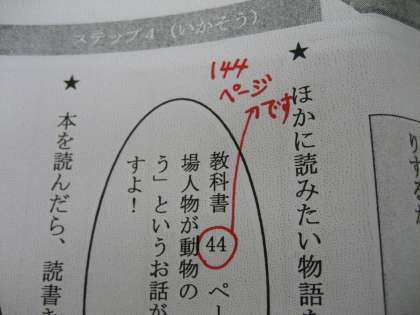 ステップ4(いかそう)
★ ほかに読みたい物語
144
ページ
です
教科書 44 ペー
場人物が動物の
う」というお話が
すよ!
★ 本を読んだら、読書